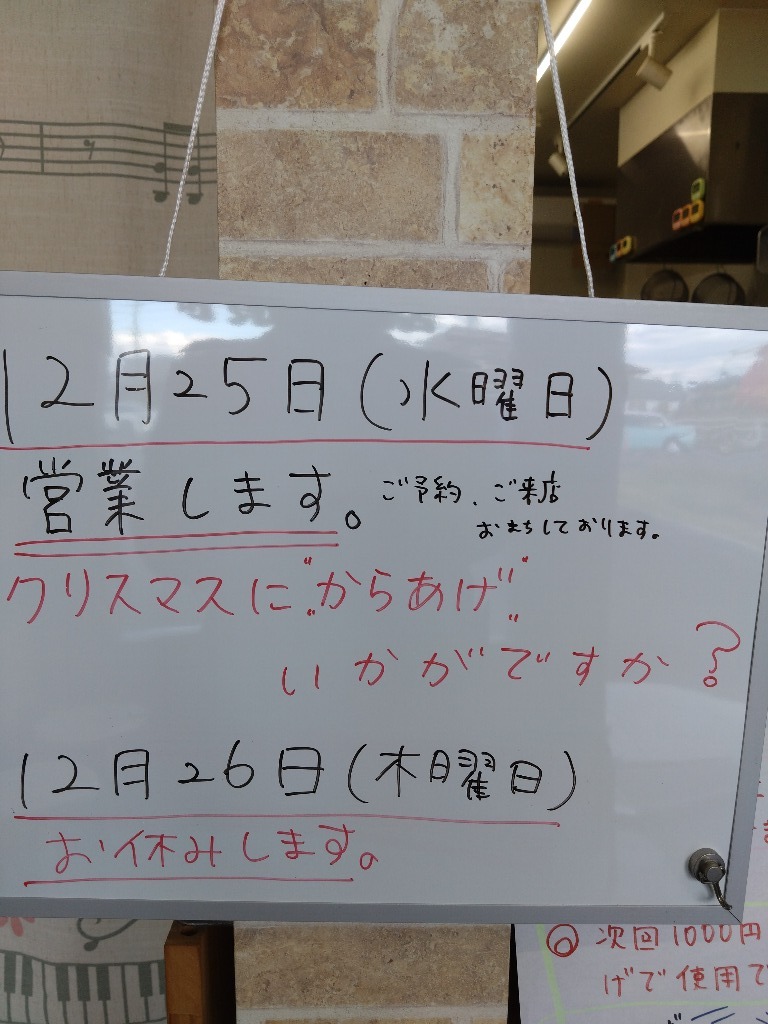 12月25日(水曜日)
営業します。ご予約、ご来店
おまちしております。
クリスマスに"からあげ"
いかがですか?
12月26日(木曜日)
お休みします。
◎次回1000円
げで使用で